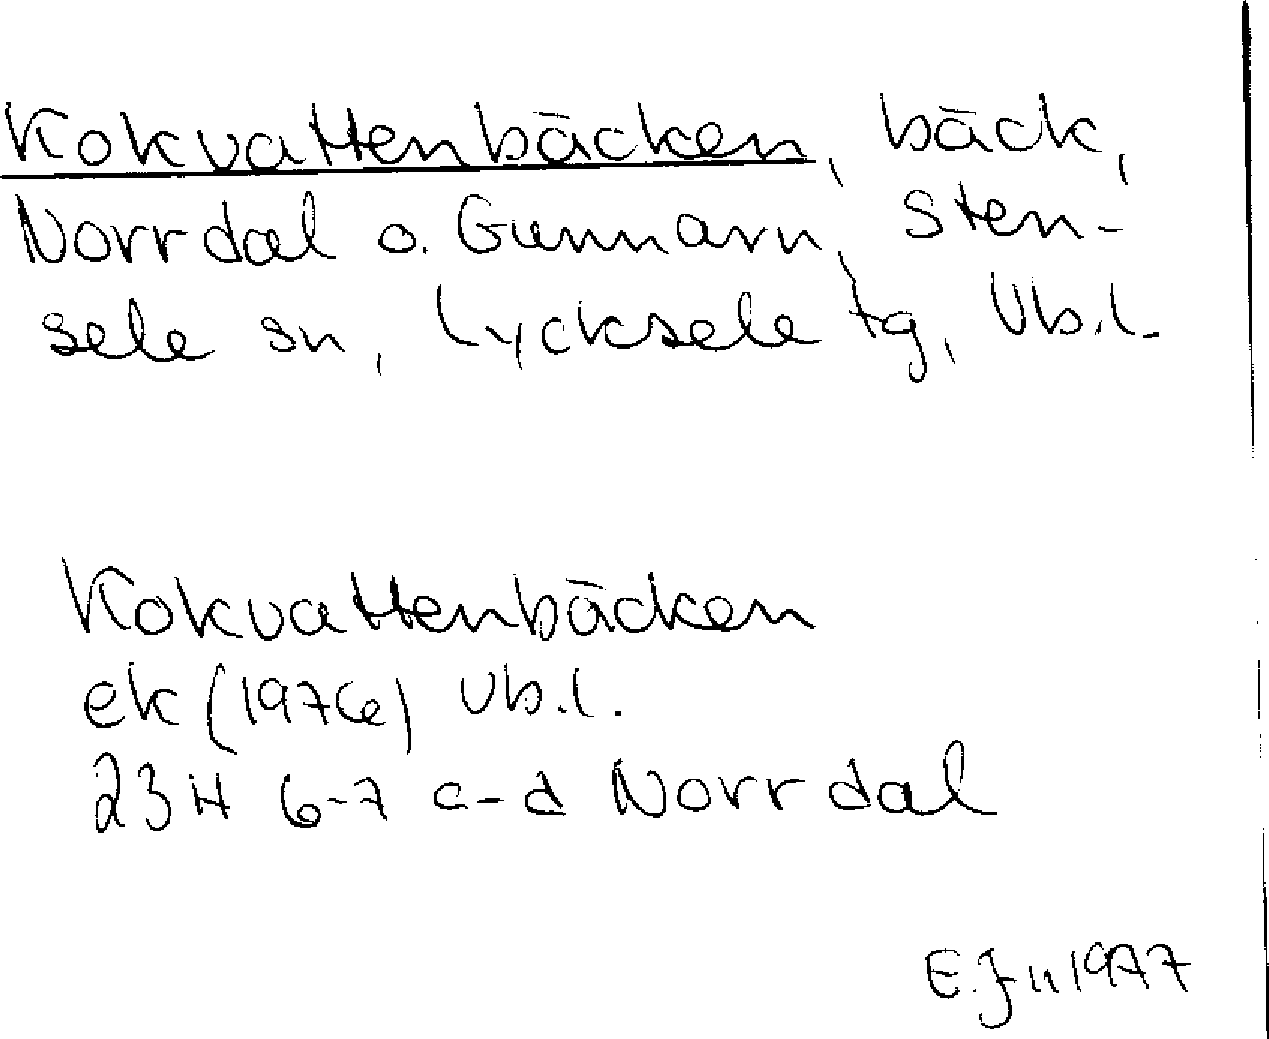 Kokvattenbäcken, bäck,
Norrdal o. Gunnarn, Sten-
sele sn, Lycksele tg, Vb.l.
Kokvattenbäcken
ek (1976) Vb.l.
23H 6-7 c-d Norrdal
E.Jn 1977